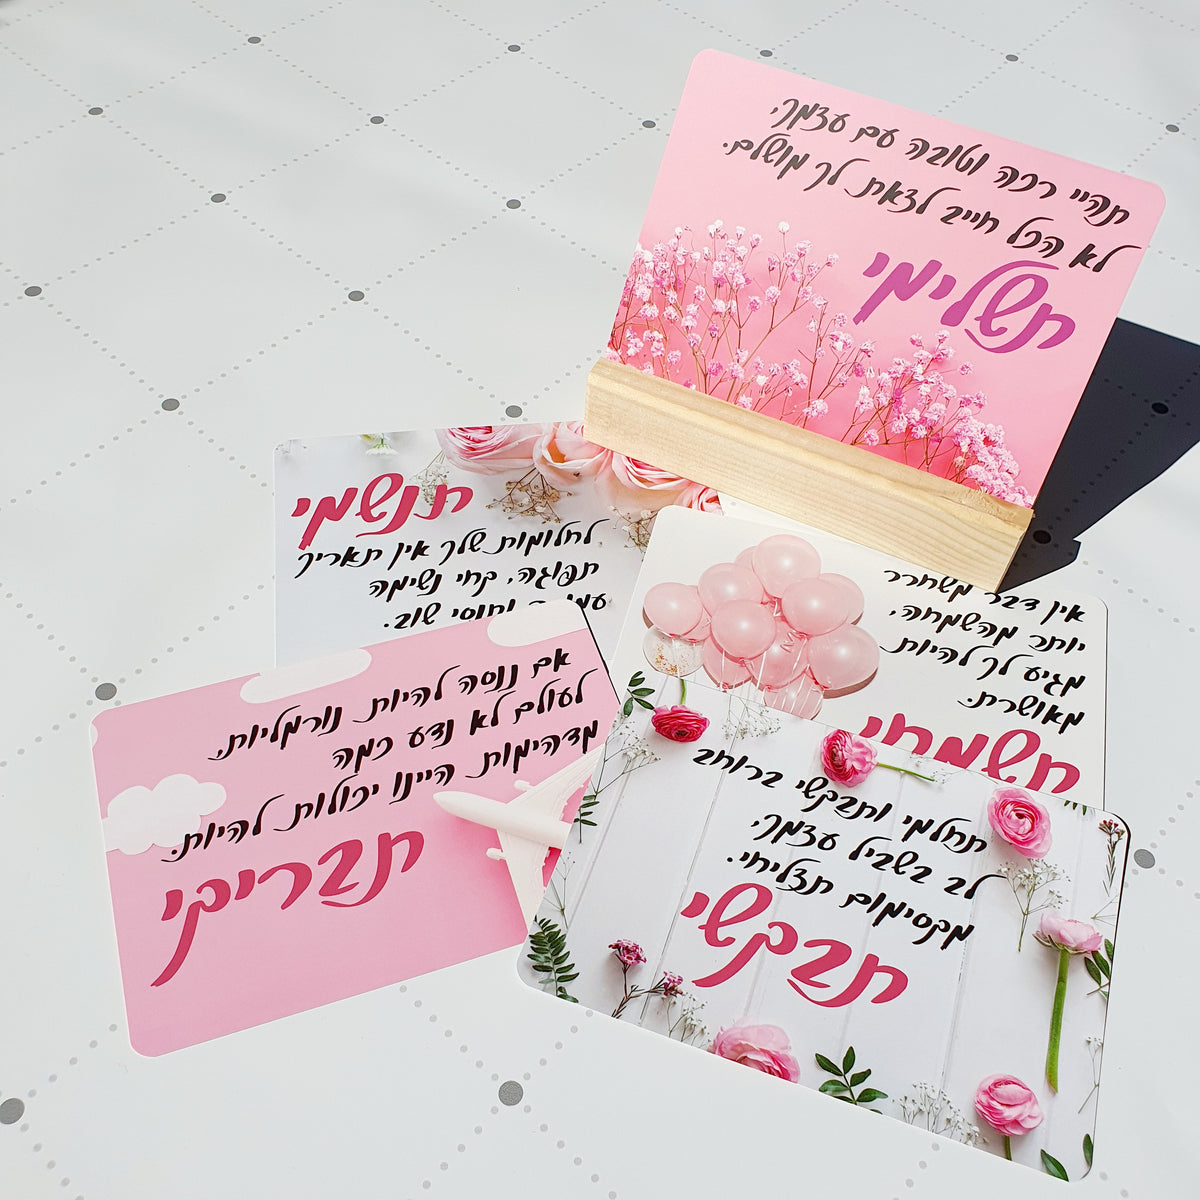 תהיי רכה וטובה עם עצמך,
לא הכל חייב לצאת לך מושלם.
תשלימי
תנשמי
לחלומות שלך אין תאריך
תפוגה, קחי נשימה
עמוקה ונוסי שוב.
אין דבר משחרר
יותר מהשמחה,
מגיע לך להיות
מאושרת.
תשמחי
אם ננסה להיות נורמליות,
לעולם לא נדע כמה
מדהימות היינו יכולות להיות.
תבריקי
תחלמי ותבקשי ברוחב
לב בשביל עצמך,
מקסימום תצליחי.
תבקשי